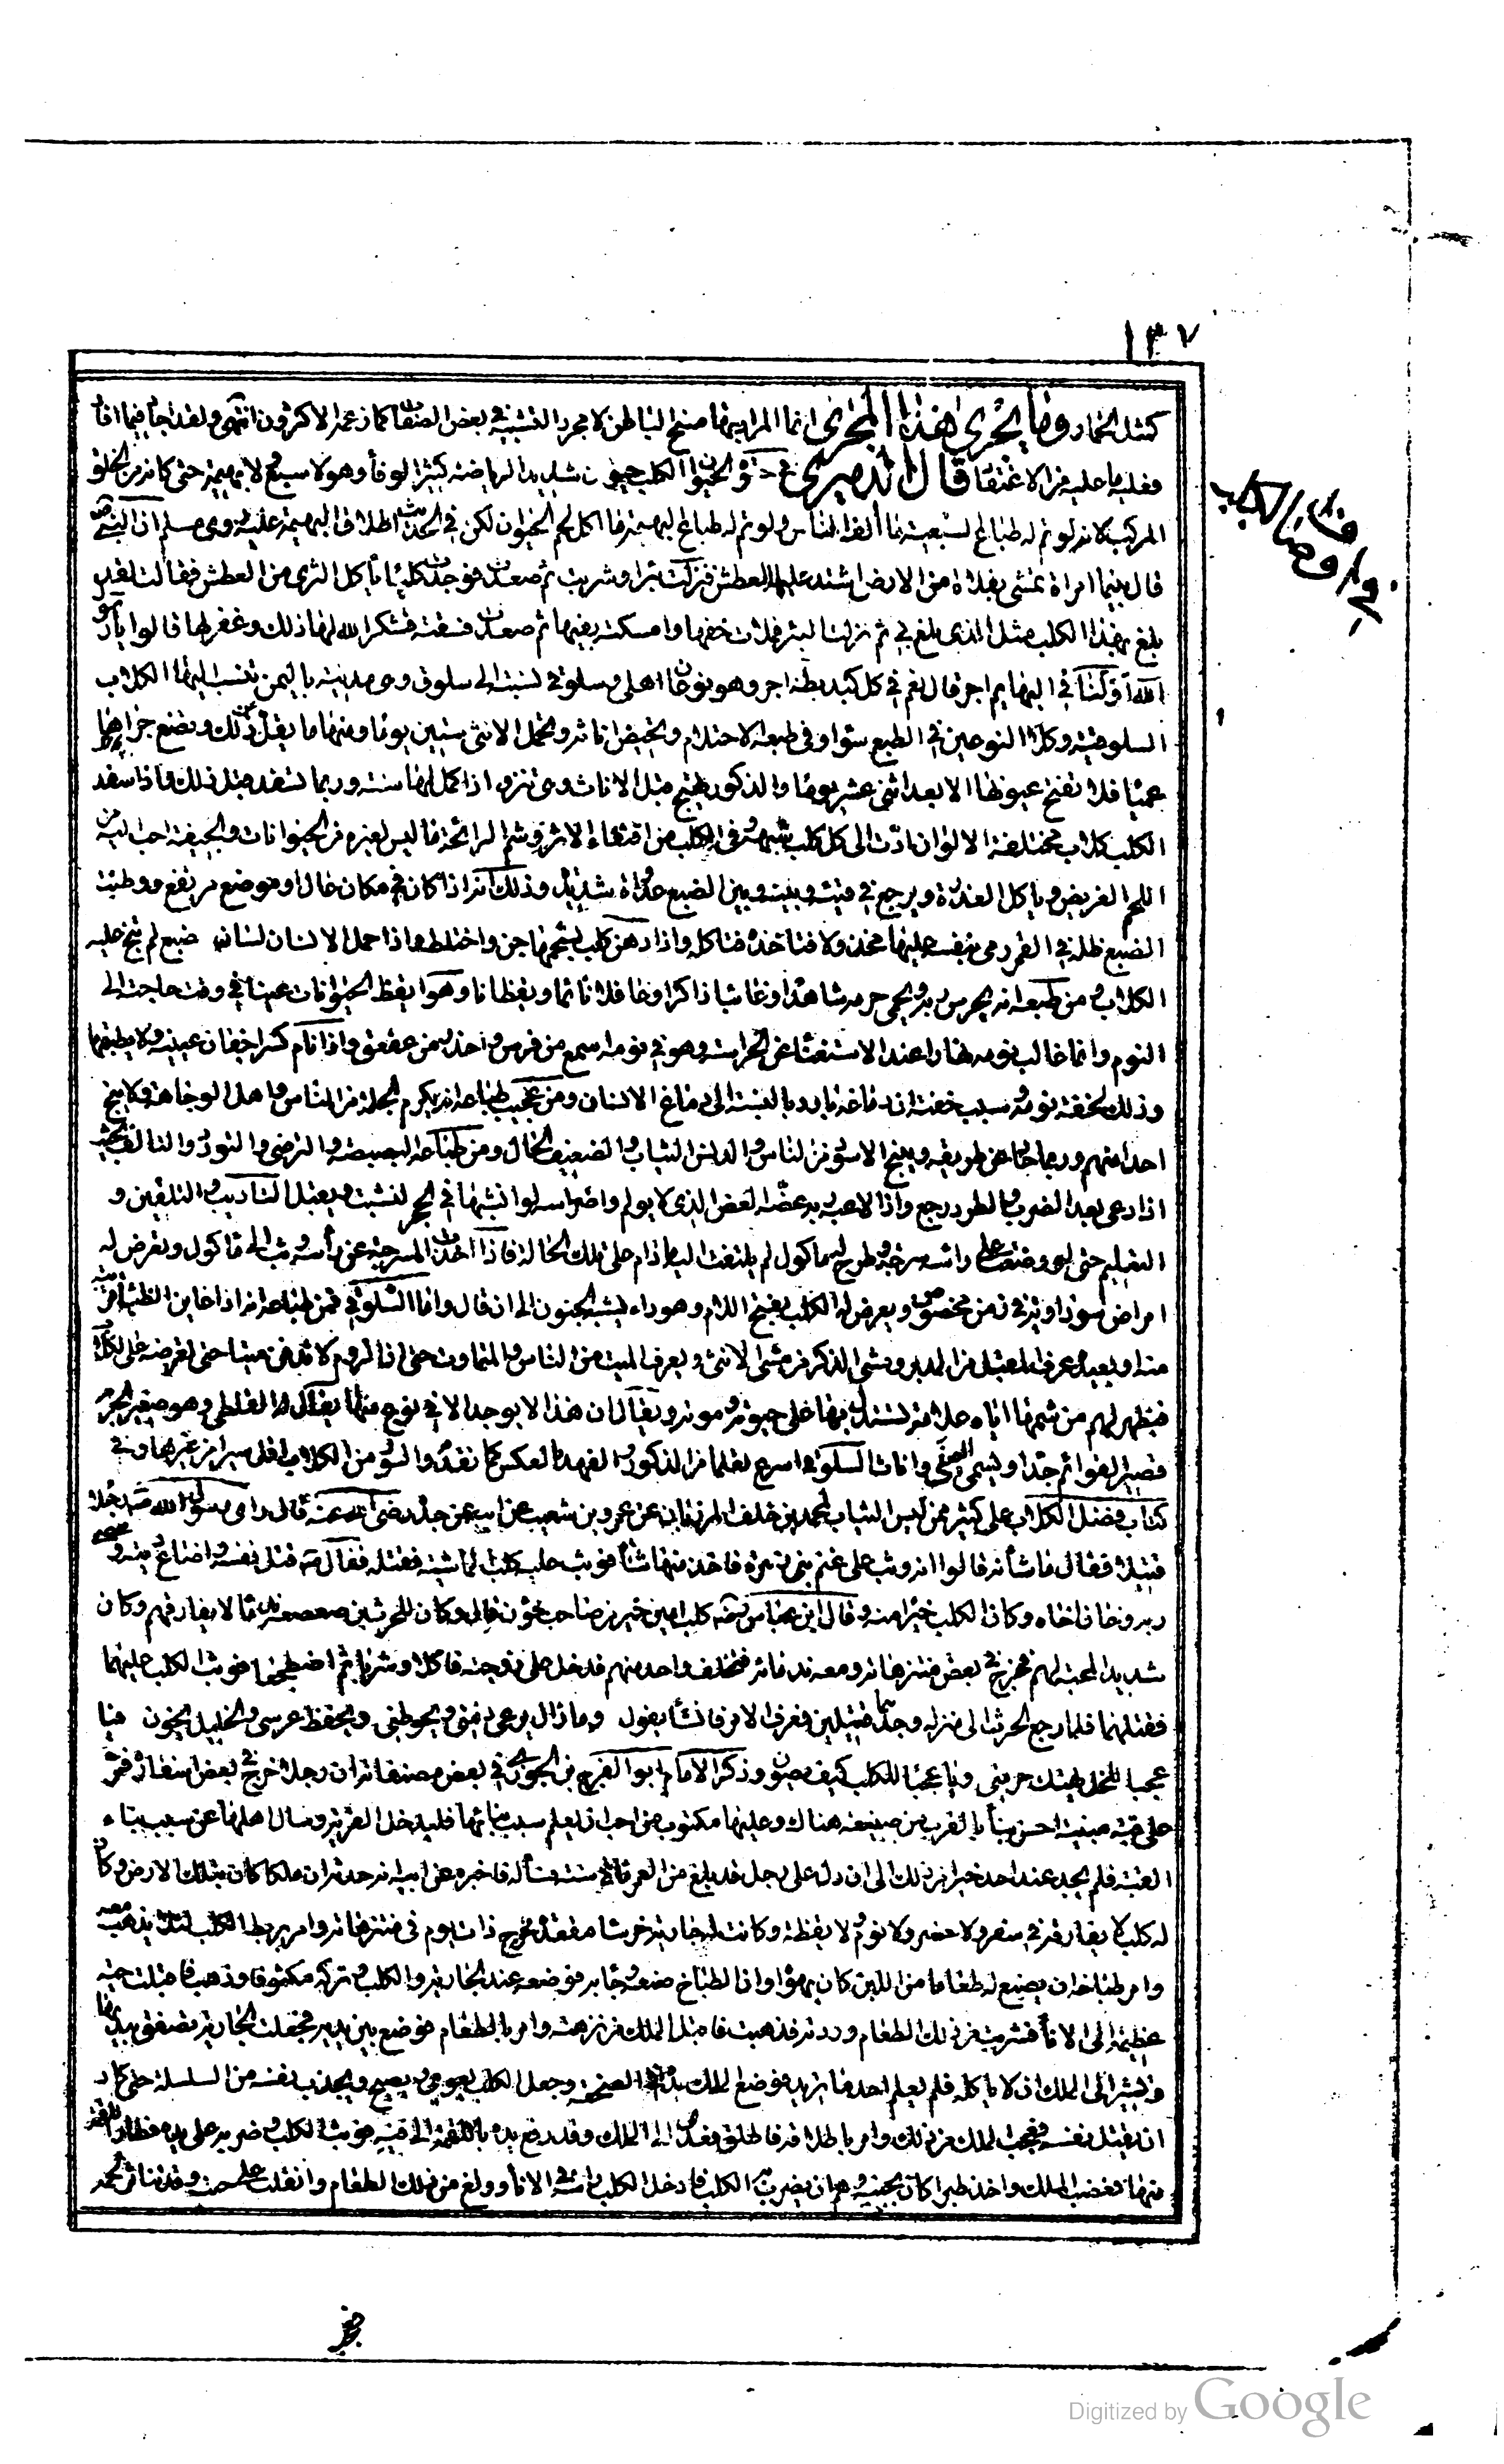 ١٣٧
كمثل الحمار وما يجرى هذا المجرى انما المراد بها مسخ الباطن لا مجرد التشبيه فى بعض الصفات كما زعم الاكثرون انتهى ولقد اجاد فيما افاد
وعليه ما عليه من الاعتقاد قال الدميرى فى حيوة الحيوان الكلب حيوان شديد الرياضة كثير الوفاء وهو لا سبع ولا بهيمة حتى كانه من الخلق
المركب لانه لو تم له طباع السبعية ما الف الناس ولو تم له طباع البهيمة ما اكل لحم الحيوان لكن فى الحديث اطلاق البهيمة عليه روى مسلم ان النبى ص
قال بينما امراة تمشى بفلاة من الارض اشتد عليها العطش فنزلت بئرا وشربت ثم صعدت فوجدت كلبا ياكل الثرى من العطش فقالت لقد
بلغ بهذا الكلب مثل الذى بلغ بى ثم نزلت البئر فملات خفها وامسكته بفيها ثم صعدت فسقته فشكر الله لها ذلك وغفر لها قالوا يا رسول
الله او لنا فى البهايم اجر قال نعم فى كل كبد رطبة اجر وهو نوعان اهلى وسلوقى نسبته الى سلوق وهى مدينة باليمن تنسب اليها الكلاب
السلوقية وكلا النوعين فى الطبع سواء وفى طبعه الاحتلام وتحيض اناثه وتحمل الانثى ستين يوما ومنها ما يقل عن ذلك وتضع جراها
عميا فلا تفتح عيونها الا بعد اثنى عشر يوما والذكور تهيج قبل الاناث وهى تنزو اذا كمل لها سنة وربما تسفد قبل ذلك فاذا سفد
الكلب كلاب مختلفة الالوان ادت الى كل كلب شبهه وفى الكلب من اقتفاء الاثر وشم الرائحة ما ليس لغيره من الحيوانات والجيفة احب اليه من
اللحم الغريض وياكل العذرة ويرجع فى قيئه وبينه وبين الضبع عداوة شديدة وذلك انه اذا كان فى مكان عال او موضع مرتفع ووطئت
الضبع ظله فى القمر رمى بنفسه عليها مخذولا فتاخذه فتاكله واذا دهن كلب بشحمها جن واختلط واذا حمل الانسان لسان ضبع لم تنبح عليه
الكلاب ومن طبعه انه يحرس ربه ويحمى حرمه شاهدا وغائبا ذاكرا وغافلا نائما ويقظانا وهو ايقظ الحيوانات عينا فى وقت حاجته الى
النوم وانما غالب نومه نهارا عند الاستغناء عن الحراسة وهو فى نومه اسمع من فرس واحذر من عقعق واذا نام كسر اجفان عينيه ولا يطبقها
وذلك لخفة نومه وسبب خفته ان دماغه بارد بالنسبة الى دماغ الانسان ومن عجيب طباعه انه يكرم الجلة من الناس واهل الوجاهة ولا ينبح
احدا منهم وربما حاد عن طريقه وينبح الاسود من الناس والدنس الثياب والضعيف الحال ومن طباعه البصبصة والترضى والتودد والتالف بحيث
اذا دعى بعد الضرب والطرد رجع واذا لاعبه ربه عضه العض الذى لا يولم واضراسه لو انشبها فى الحجر لنشبت ويقبل التاديب والتلقين و
التعليم حتى لو وضعت على راسه مسرجة وطرح له ماكول لم يلتفت اليه مادام على تلك الحالة فاذا اخذت المسرجة عن راسه وثب الى ماكوله وتعرض له
امراض سوداوية فى زمن مخصوص ويعرض له الكلب بفتح اللام وهو داء يشبه الجنون الى ان قال واما السلوقى فمن طباعه انه اذا عاين الظباء قريبة
منه او بعيدة عرف المقبل من المدبر ومشى الذكر من مشى الانثى ويعرف الميت من الناس والمتماوت حتى ان الروم لا تدفن ميتا حتى تعرضه على الكلاب
فيظهر لهم من شمها اياه علامة تستدل بها على حيوته وموته ويقال ان هذا لا يوجد الا فى نوع منها يقال له القلطى وهو صغير الجرم
قصير القوائم جدا ويسمى الصينى واناث السلوقى اسرع تعلما من الذكور والفهد بالعكس كما تقدم والسود من الكلاب اقل صبرا من غيرها وفى
كتاب فضل الكلاب على كثير ممن لبس الثياب لمحمد بن خلف المرزبانى عن عمرو بن شعيب عن ابيه عن جده رضى الله عنه قال راى رسول الله ص رجلا
قتيلا فقال ما شانه قالوا انه وثب على غنم بنى زهرة فاخذ منها شاة فوثب عليه كلب الماشية فقتله فقال ص قتل نفسه واضاع دينه وعصى
ربه وخان اخاه وكان الكلب خيرا منه وقال ابن عباس رضه كلب امين خير من صاحب خؤن قال وكان للحرث بن صعصعة ندماء لا يفارقهم وكان
شديد المحبة لهم فخرج فى بعض منتزهاته ومعه ندمائه فتخلف واحد منهم فدخل على زوجته فاكلا وشربا ثم اضطجعا فوثب الكلب عليهما
فقتلهما فلما رجع الحرث الى منزله وجدهما قتيلين فعرف الامر فانشا يقول وما زال يرعى ذمتى ويحوطنى ويحفظ عرسى والخليل يخون فيا
عجبا للخل يهتك حرمتى ويا عجبا للكلب كيف يصون وذكر الامام ابو الفرج بن الجوزى فى بعض مصنفاته ان رجلا خرج فى بعض اسفاره فمر
على قبة مبنية احسن بناء بالقرب من ضيعة هناك وعليها مكتوب من احب ان يعلم سبب بنائها فليدخل القرية وسال اهلها عن سبب بناء
القبة فلم يجد عند احد خبرا من ذلك الى ان دل على رجل قد بلغ من العمر مائتى سنة فساله فاخبره عن ابيه انه حدثه ان ملكا كان بتلك الارض وكان
له كلب لا يفارقه فى سفر ولا حضر ولا نوم ولا يقظة وكانت له جارية خرساء مقعدة فخرج ذات يوم فى منتزهاته وامر بربط الكلب لئلا يذهب معه
وامر طباخه ان يصنع له طعاما من اللبن كان يهواه وان الطباخ صنعه وجاء به فوضعه عند الجارية والكلب وتركه مكشوفا وذهب فاقبلت حية
عظيمة الى الاناء فشربت من ذلك الطعام وردته فذهبت فاقبل الملك من نزهته وامر بالطعام فوضع بين يديه فجعلت الجارية تصفق بيديها
وتشير الى الملك ان لا ياكله فلم يعلم احد ما تريد فوضع الملك يده فى الصحفة وجعل الكلب يعوى ويصيح ويجذب نفسه من السلسلة حتى كاد
ان يقتل نفسه فتعجب الملك من ذلك وامر باطلاقه فاطلق فعدا الى الملك وقد رفع يده باللقمة الى فيه فوثب الكلب وضربه على يده فطار اللقمة
منها فغضب الملك واخذ طبرا كان بجنبه وهم ان يضرب به الكلب فادخل الكلب راسه فى الاناء وولغ من ذلك الطعام وانقلب على جنبه وقد تناثر لحمه
Digitized by Google